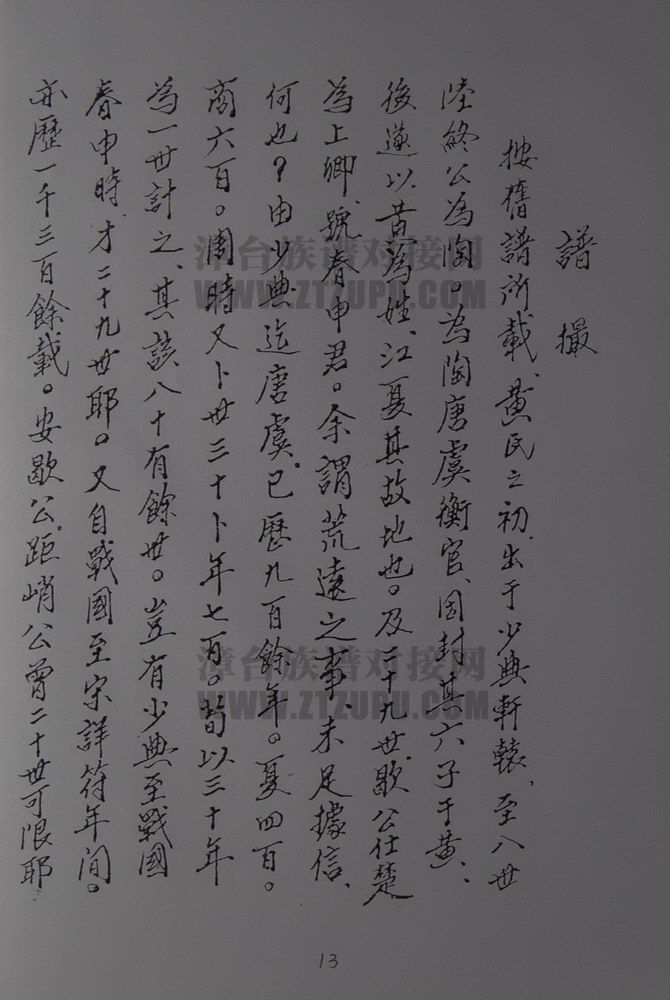 譜撮
按舊譜所載、黄民之初、出于少典軒轅、至八世
陸終公為陶。為陶唐虞衡官、因封其六子于黄、
後遂以黄為姓、江夏其故地也。及二十九世歇公仕楚
為上卿、號春申君。余謂荒遠之事、未足據信、
何也？由少典迄唐虞、已歷九百餘年。夏四百。
商六百。周時又卜世三十卜年七百。荀以三十年
為一世計之、其該八十有餘世。豈有少典至戰國
春申時、才二十九世耶。又自戰國至宋詳符年间。
亦歷一千三百餘載。安歇公、距峭公曾二十世可限耶
13
漳台族谱对接网
WWW.ZTZUPU.COM
漳台族谱对接网
WWW.ZTZUPU.COM